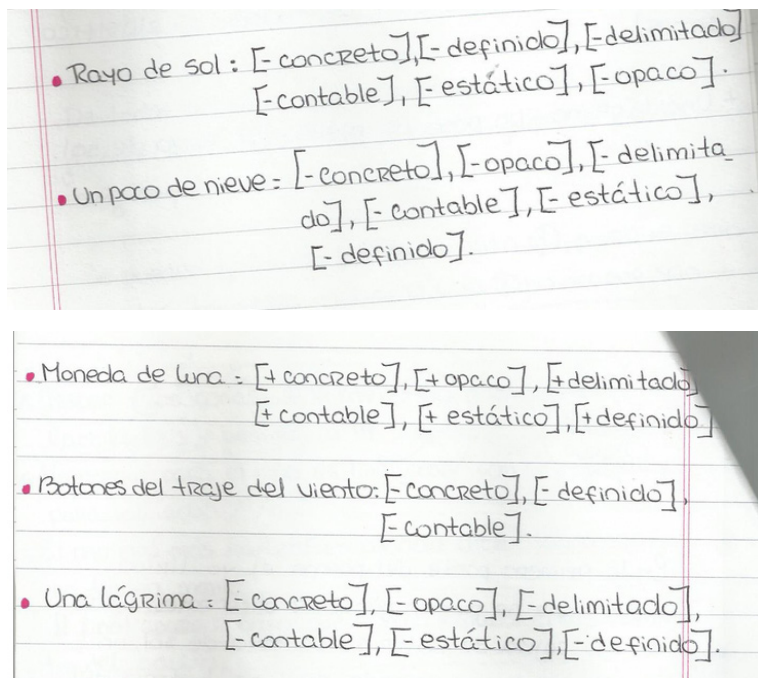 • Rayo de sol: [-concreto], [-definido], [-delimitado]
[-contable], [-estático], [-opaco].
• Un poco de nieve: [-concreto], [-opaco], [-delimita_
do], [-contable], [-estático],
[-definido].
• Moneda de luna: [+concreto], [+opaco], [+delimitado]
[+contable], [+estático], [+definido]
• Botones del traje del viento: [-concreto], [-definido],
[-contable].
• Una lágrima: [-concreto], [-opaco], [-delimitado],
[-contable], [-estático], [-definido].